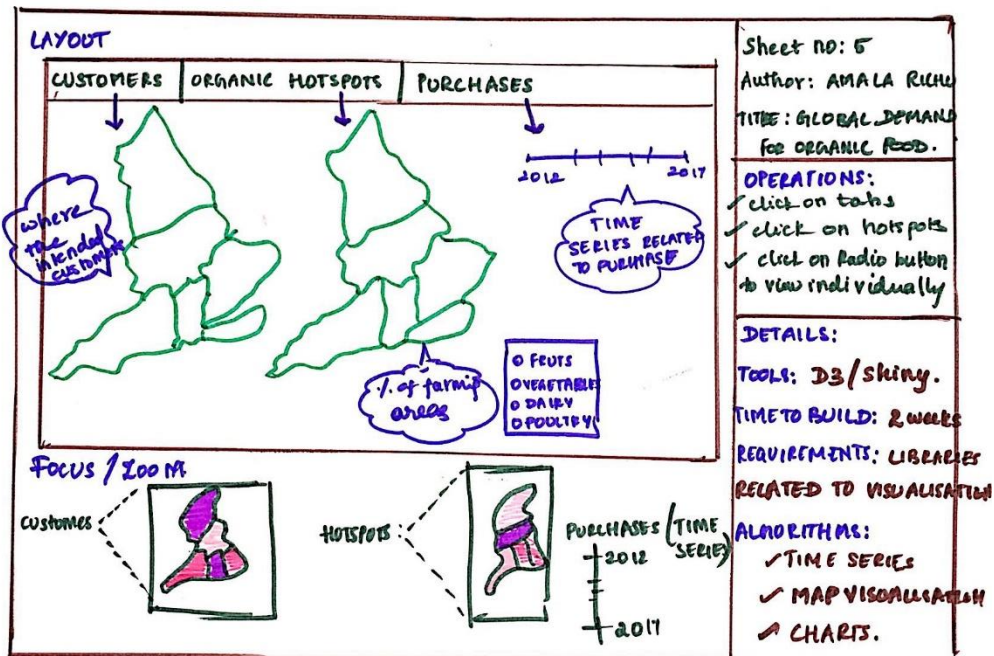 LAYOUT
CUSTOMERS
ORGANIC HOTSPOTS
PURCHASES
where
the
intended
customers
2012
2017
TIME
SERIES RELATED
TO PURCHASE
% of farming
areas
FRUTS
VEGETABLE
DAIRY
POULTRY
FOCUS / ZOOM
CUSTOMES
HOTSPOTS
PURCHASES (TIME
SERIES)
2012
2017
Sheet no: 5
Author: AMALA
TITLE: GLOBAL DEMAND
FOR ORGANIC FOOD.
OPERATIONS:
✓ click on tabs
✓ click on hotspots
✓ click on Radio button
to view individually
DETAILS:
TOOLS: D3/Shiny.
TIME TO BUILD: 2 weeks
REQUIREMENTS: LIBRARIES
RELATED TO VISUALISATION
ALGORITHMS:
✓ TIME SERIES
✓ MAP VISUALISATION
✓ CHARTS.